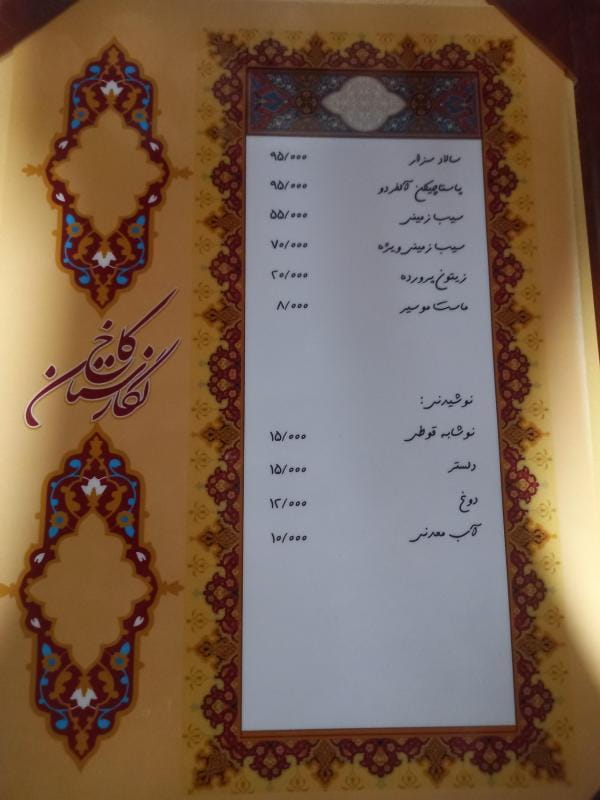 سالاد سزار ۹۵/۰۰۰
پاستاچیکن آلفردو ۹۵/۰۰۰
سیب زمینی ۵۵/۰۰۰
سیب زمینی ویژه ۷۰/۰۰۰
زیتون پرورده ۲۰/۰۰۰
ماست موسیر ۸/۰۰۰
نوشیدنی:
نوشابه قوطی ۱۵/۰۰۰
دلستر ۱۵/۰۰۰
دوغ ۱۲/۰۰۰
آب معدنی ۱۰/۰۰۰
کاخ
نگارستان